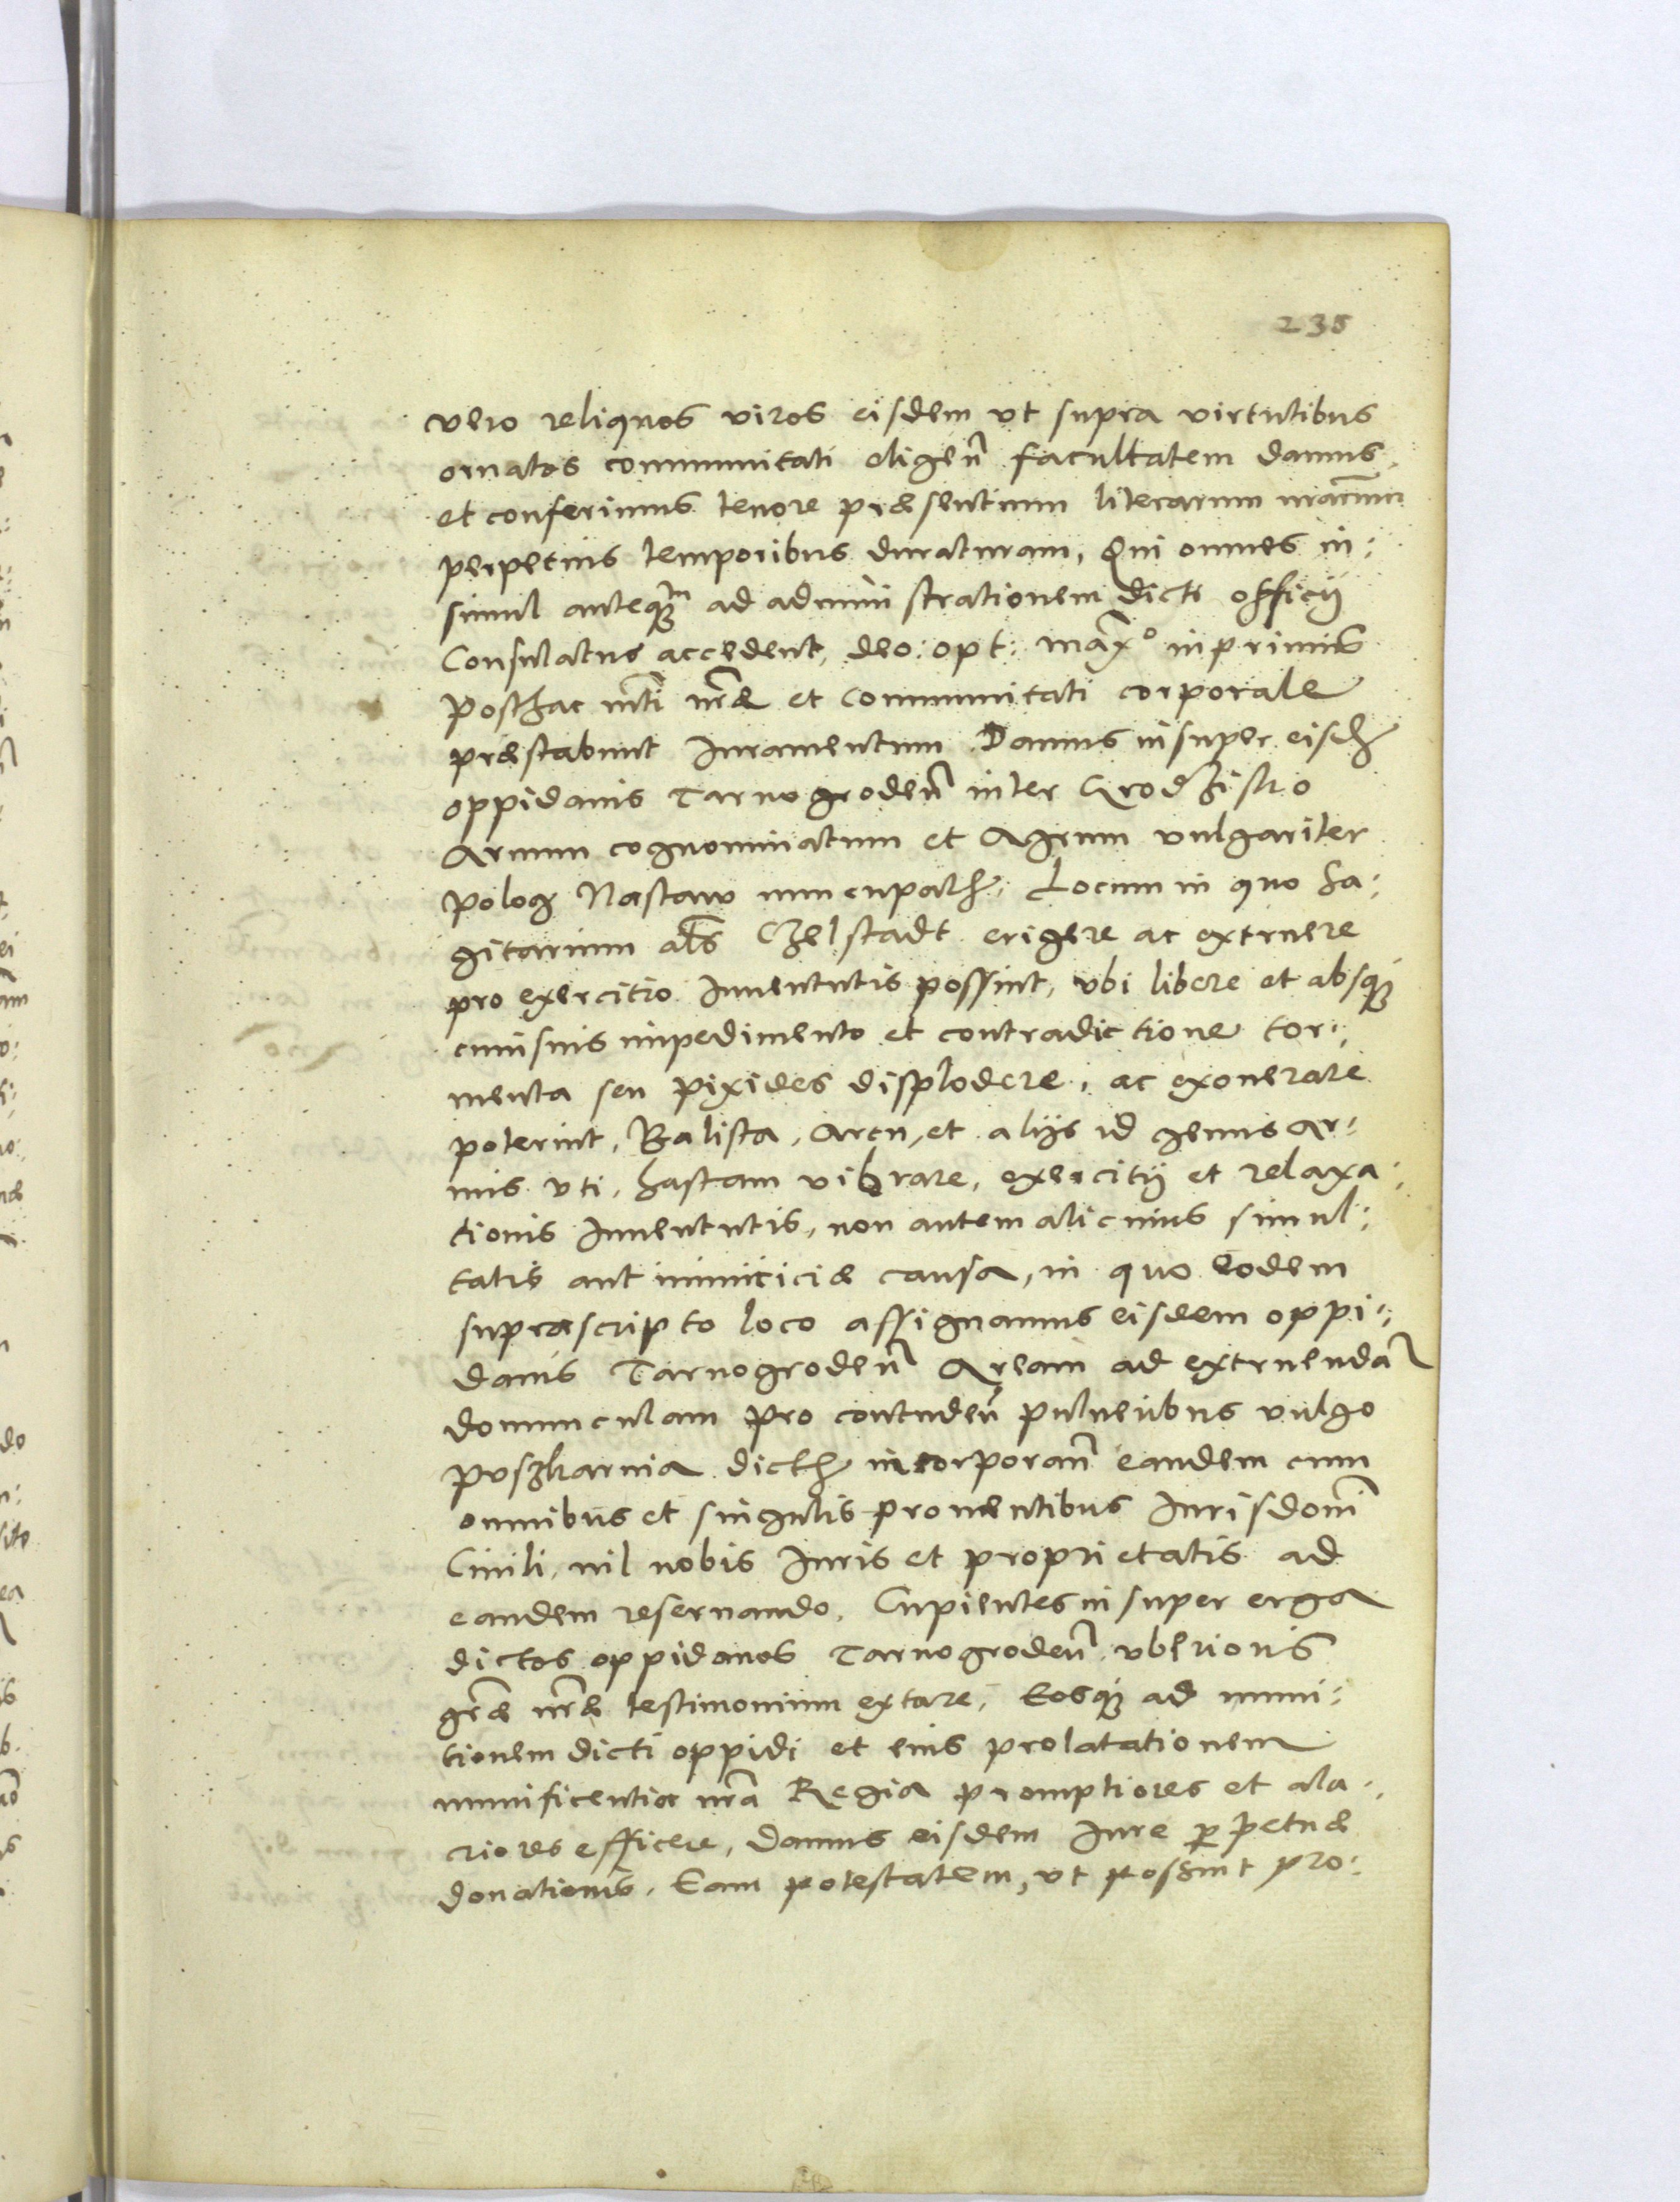 235
vero reliquos viros eisdem vt supra virtutibus
ornatos communitati eligen̄ facultatem damus,
et conferimus tenore præsentium literarum nr̄arum
perpetuis temporibus duraturam, Qui omnes in:
simul anteqȝm ad administrationem dicti officij
Consulatus accedent, deo: opt: māx° inprimis
posthac mt̄i nr̄æ et communitati corporale
præstabunt Iuramentum. Damus insuper eisdȝ
oppidanis Tarnogroden̄ inter Grodzisko
Aruum cognominatum et Agrum vulgariter
polog Nastaw nuncupatȝ, Locum in quo Sa:
gitarium al̄s Czelstadt erigere ac extruere
pro exercitio Iuuentutis possint, vbi libere et absqȝ
cuiusuis impedimento et contradictione tor:
menta seu pixides displodere, ac exonerare
poterint, Balista, Arcu, et alijs id genus Ar:
mis vti, hastam vibrare, exercitij et relaxa:
tionis Iuuentutis, non autem alicuius simul:
tatis aut inimiciciæ causa, in quo eodem
suprascripto loco assignamus eisdem oppi:
danis Tarnogroden̄ Aream ad extruendā
domunculam pro contuden̄ pulueribus vulgo
puszkarnia dictȝ incorporan̄ eandem cum
omnibus et singulis prouentibus Iurisdoni̅
Ciuili, nil nobis Iuris et proprietatis ad
eandem reseruando. Cupientes insuper erga
dictos oppidanos Tarnogroden̄ vberioris
gr̄æ nr̄æ testimonium extare, Eosqȝ ad muni:
tionem dicti oppidi et eius prolatationem
munificentia nr̄a Regia promptiores et ala:
criores efficere, damus eisdem Iure perpetuæ
donationis. Eam potestatem, vt possint pro: